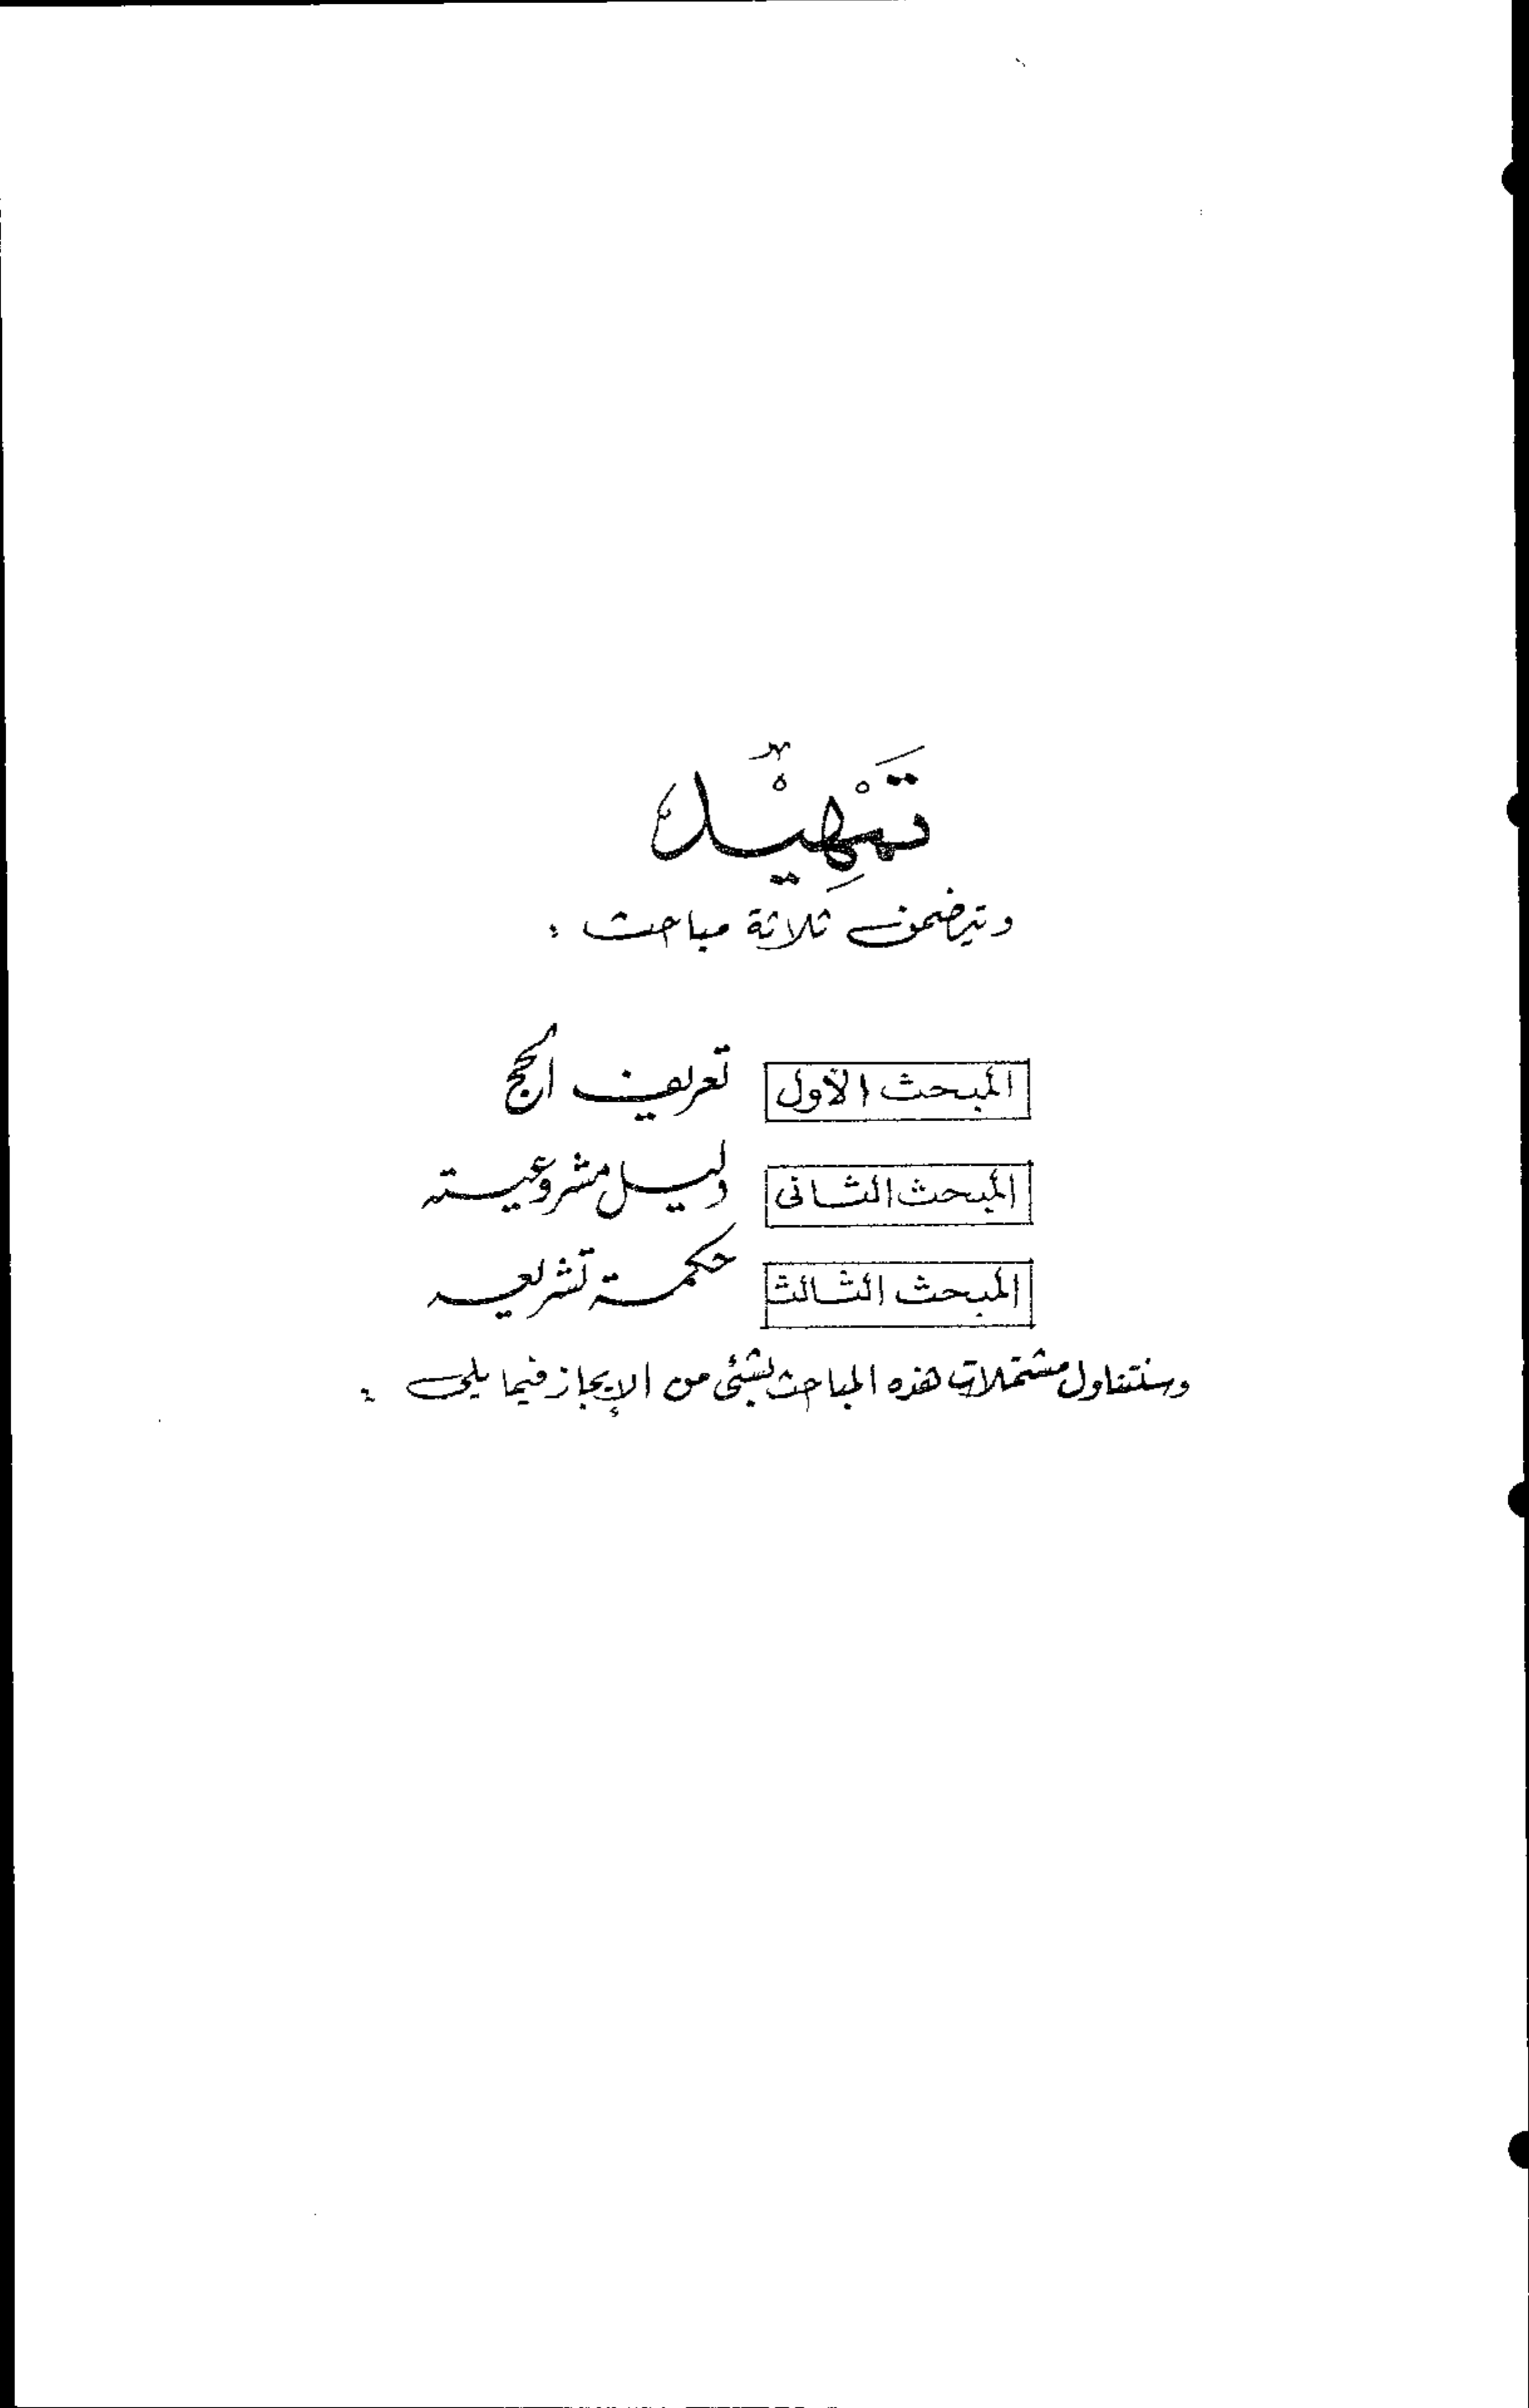 تَمْهِيْد
ويتضمن ثلاثة مباحث :
المبحث الأول تعريف الحج
المبحث الثاني دليل مشروعيته
المبحث الثالث حكمة تشريعه
وسنتناول مشتملات هذه المباحث بشئ من الإيجاز فيما يلي :